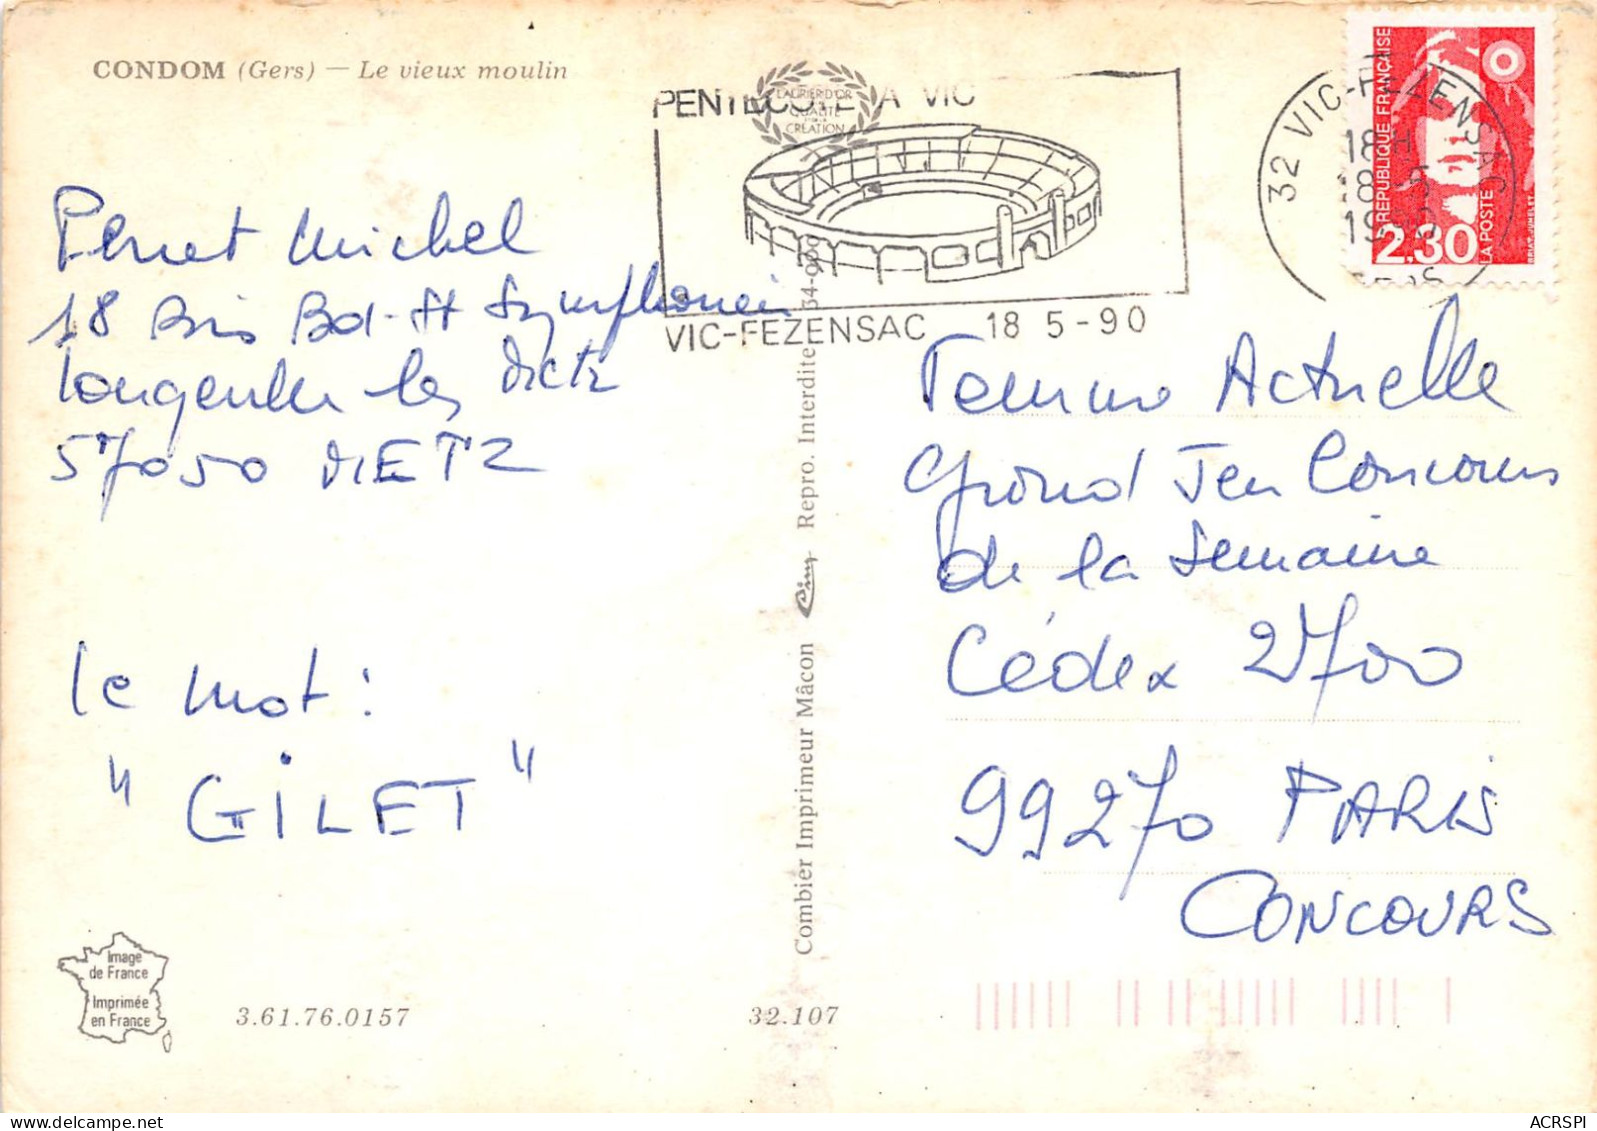 CONDOM (Gers) — Le vieux moulin
LAURIER D'OR
QUALITÉ
CRÉATION
PENTECOTE A VIC
VIC-FEZENSAC 18 5-90
32 VIC-FEZENSAC
18H
18-5
1990
GERS
REPUBLIQUE FRANÇAISE
LA POSTE
2.30
Perret Michel
18 Bis Bd-St Symphorien
Longeville les Metz
57050 METZ
le mot :
"GILET"
Combier Imprimeur Mâcon Cim Repro. Interdite 34-000
Femme Actuelle
Grand Jeu Concours
de la Semaine
Cédex 2700
99270 PARIS
CONCOURS
Image
de France
Imprimée
en France
3.61.76.0157
32.107
ACRSPI